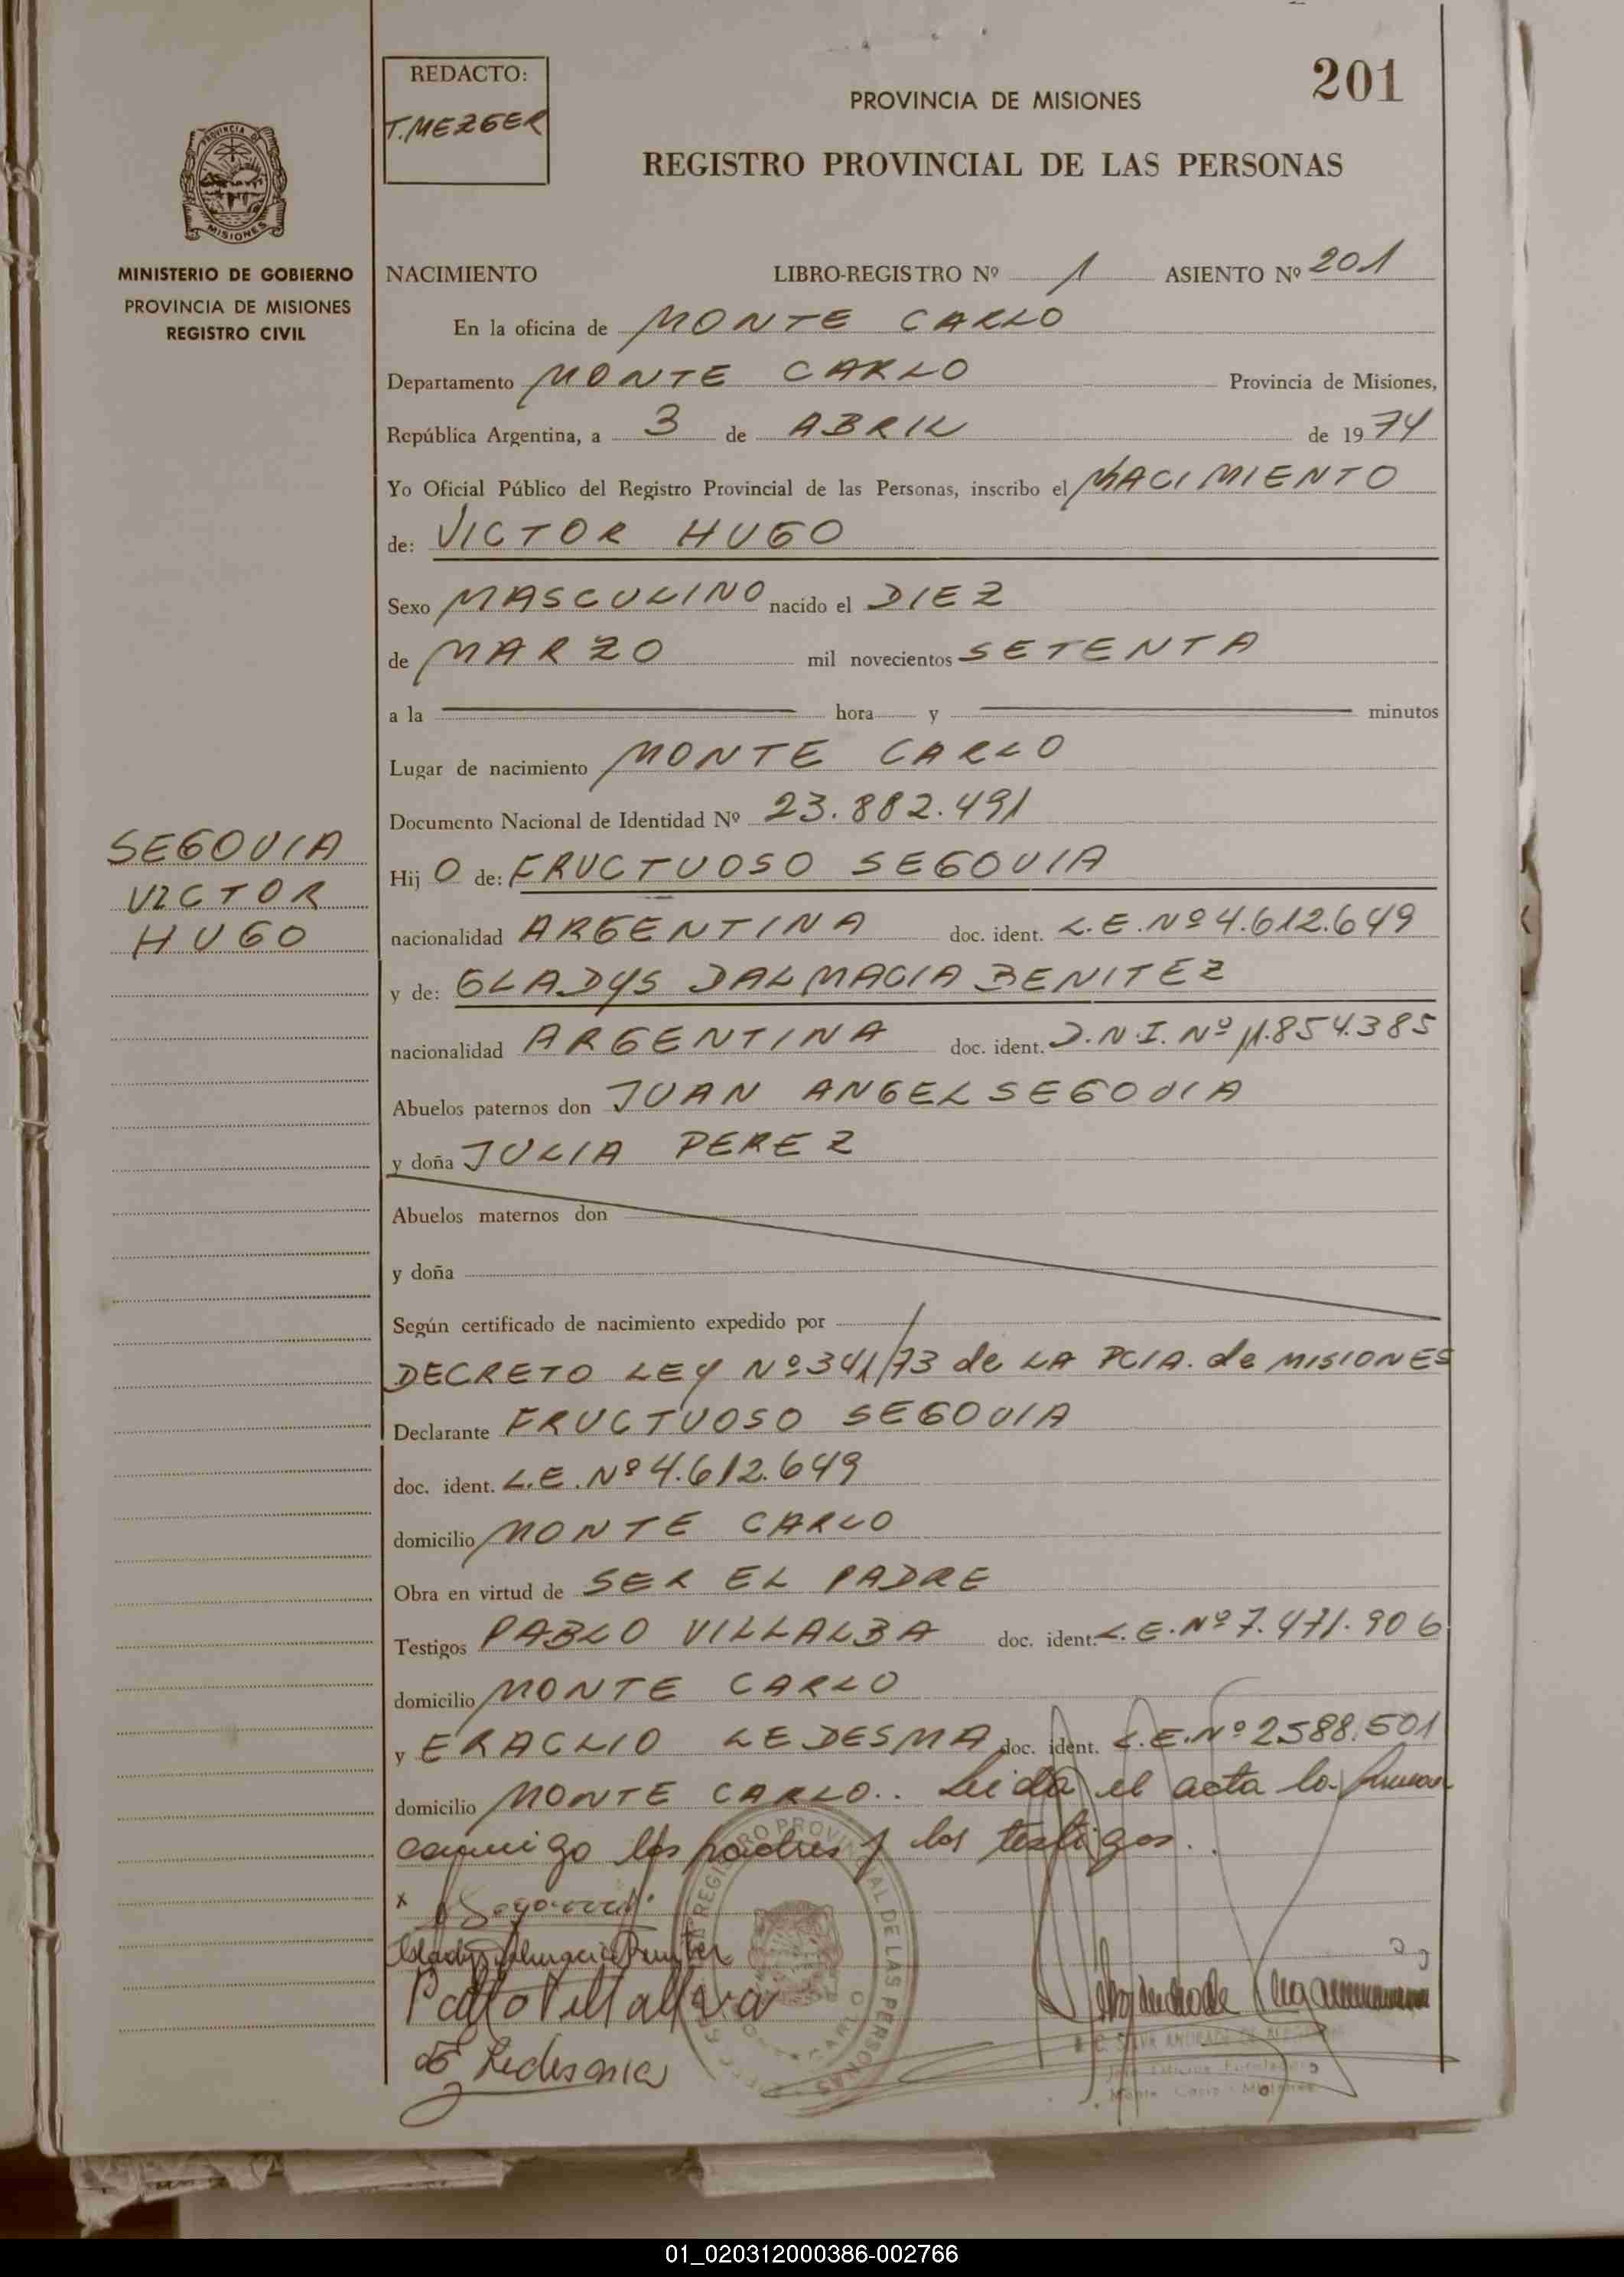 REDACTO:
T. MEZGER
201
PROVINCIA DE MISIONES
REGISTRO PROVINCIAL DE LAS PERSONAS
PROVINCIA DE
MISIONES
MINISTERIO DE GOBIERNO
PROVINCIA DE MISIONES
REGISTRO CIVIL
NACIMIENTO LIBRO-REGISTRO Nº 1 ASIENTO Nº 201
En la oficina de MONTE CARLO
Departamento MONTE CARLO Provincia de Misiones,
República Argentina, a 3 de ABRIL de 1974
Yo Oficial Público del Registro Provincial de las Personas, inscribo el NACIMIENTO
de: VICTOR HUGO
Sexo MASCULINO nacido el DIEZ
de MARZO mil novecientos SETENTA
a la hora y minutos
Lugar de nacimiento MONTE CARLO
Documento Nacional de Identidad Nº 23.882.491
SEGOVIA
VICTOR
HUGO
Hij O de: FRUCTUOSO SEGOVIA
nacionalidad ARGENTINA doc. ident. L.E. Nº 4.612.649
y de: GLADYS DALMACIA BENITEZ
nacionalidad ARGENTINA doc. ident. D.N.I. Nº 11.854.385
Abuelos paternos don JUAN ANGEL SEGOVIA
y doña JULIA PEREZ
Abuelos maternos don
y doña
Según certificado de nacimiento expedido por
DECRETO LEY Nº 341/73 de LA PCIA. de MISIONES
Declarante FRUCTUOSO SEGOVIA
doc. ident. L.E. Nº 4.612.649
domicilio MONTE CARLO
Obra en virtud de SER EL PADRE
Testigos PABLO VILLALBA doc. ident. L.E. Nº 7.471.906
domicilio MONTE CARLO
y ERACLIO LEDESMA doc. ident. L.E. Nº 2588.501
domicilio MONTE CARLO.. Leida el acta la firman
conmigo los padres y los testigos.
x Segovia
Gladys Dalmacia Benitez
Pablo Villalba
E Ledesma
REGISTRO PROVINCIAL DE LAS PERSONAS
MONTE CARLO
01_020312000386-002766